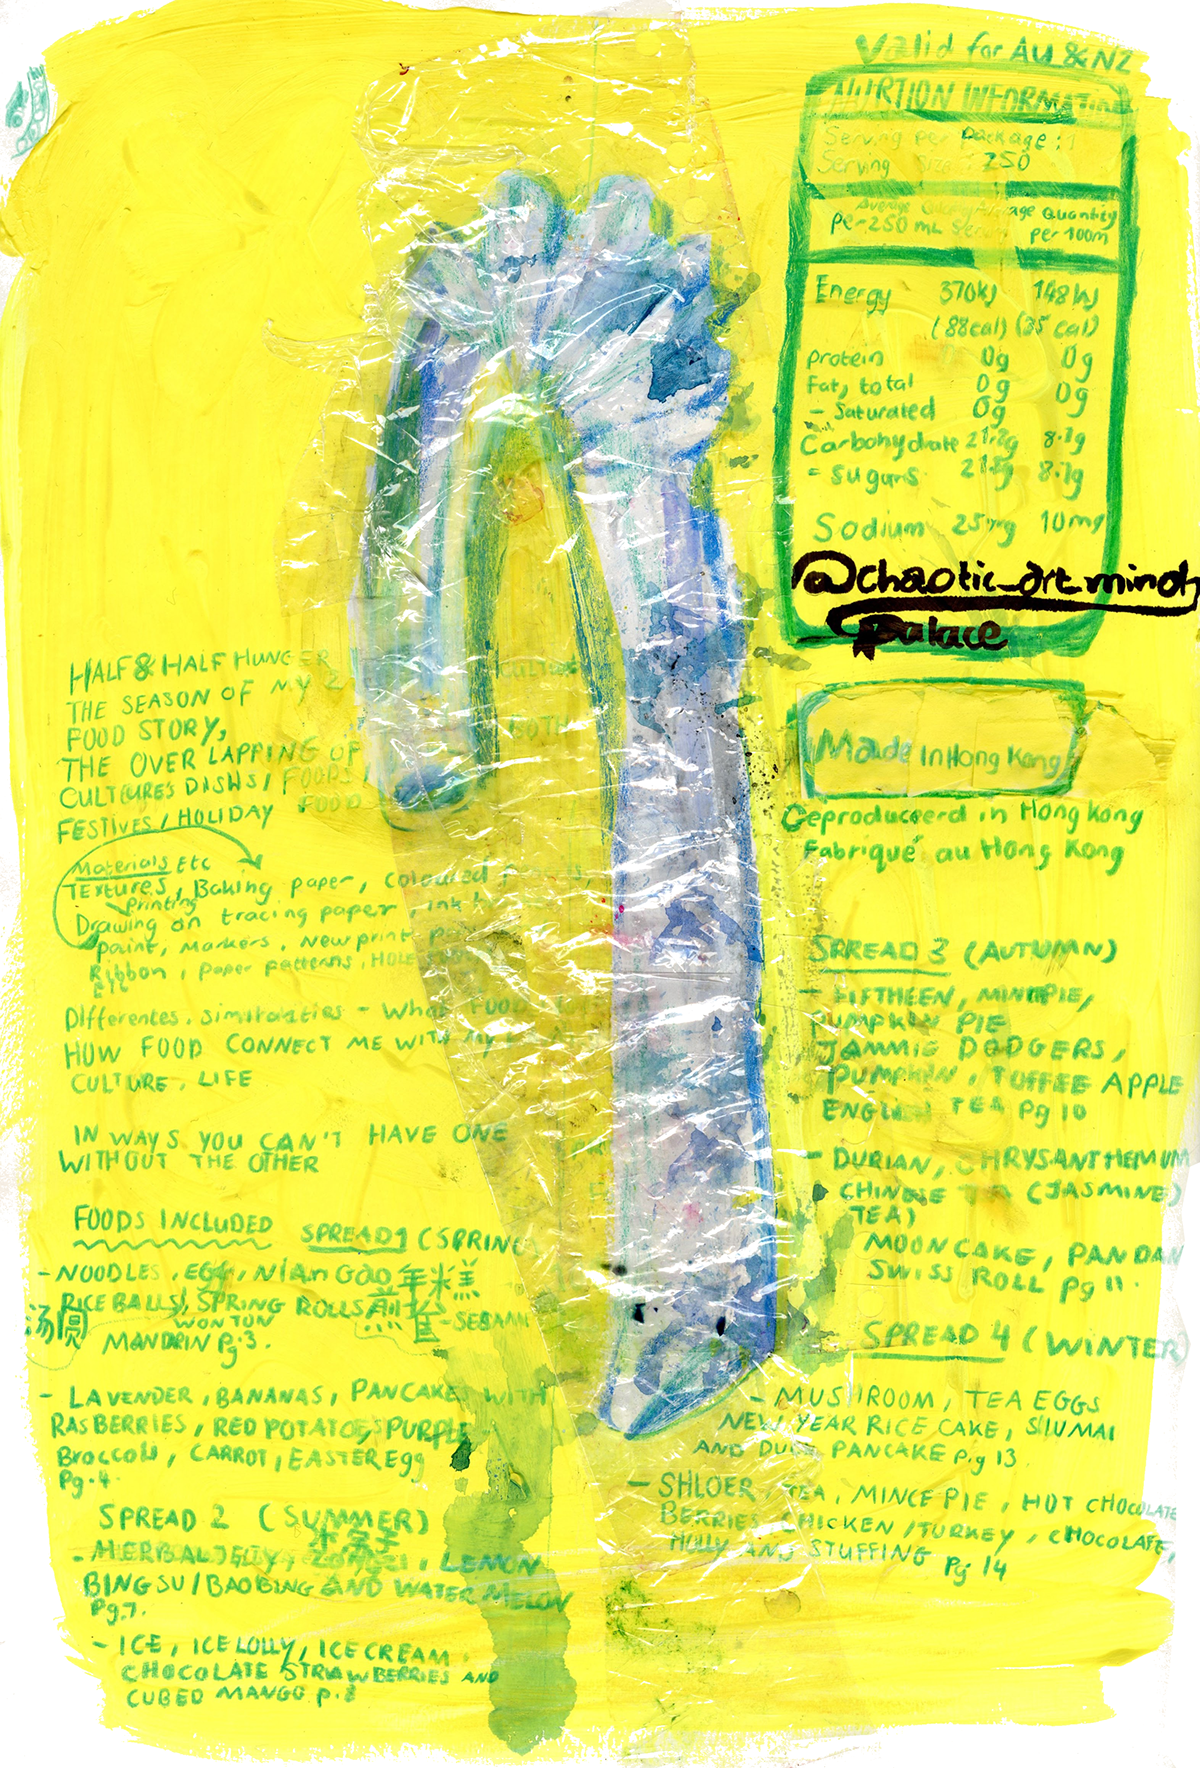 Valid for AU & NZ
NURTION INFORMATION
Serving per Package : 1
Serving Size : 250
Average Quantity
per 250 mL
Average Quantity
per 100m
Energy 370kJ 148kJ
(88cal) (35 cal)
protein 0g 0g
Fat, total 0g 0g
- Saturated 0g
Carbohydrate 21.8g 8.7g
= sugars 21.8g 8.7g
Sodium 25mg 10mg
@chaotic_art.mindpalace
Made in Hong Kong
Geproduceerd in Hong Kong
Fabriqué au Hong Kong
HALF & HALF HUNGER
THE SEASON OF MY 2
FOOD STORY,
THE OVER LAPPING OF
CULTURES DISHS / FOODS
FESTIVES / HOLIDAY FOOD
CULTURE
BOTH
Materials Etc
TEXTURES, Baking paper, coloured
Printing
Drawing on tracing paper, ink
paint, markers, Newprint
Ribbon, paper patterns, HOLE
Etc
Differentes, similaraties - What FOOD
HOW FOOD CONNECT ME WITH MY
CULTURE, LIFE
IN WAYS YOU CAN'T HAVE ONE
WITHOUT THE OTHER
FOODS INCLUDED
SPREAD 1 (SPRING
- NOODLES, EGG, NIAN GAO 年糕
RICE BALLS, SPRING ROLLS 煎堆 - SESAME
汤圆 WONTON
MANDRIN Pg 3.
- LAVENDER, BANANAS, PANCAKES WITH
RASBERRIES, RED POTATOE, PURPLE
BROCCOLI, CARROT, EASTER Egg
Pg. 4.
SPREAD 2 (SUMMER)
- HERBAL JELLY, LEMON
BINGSU / BAOBING AND WATER MELON
Pg 7.
- ICE, ICE LOLLY, ICE CREAM,
CHOCOLATE STRAWBERRIES AND
CUBED MANGO P. 8
SPREAD 3 (AUTUMN)
- FIFTHEEN, MINTPIE,
PUMPKIN PIE
JAMMIE DODGERS,
PUMPKIN, TOFFEE APPLE
ENGLISH TEA Pg 10
- DURIAN, CHRYSANTHEMUM
CHINESE TEA (JASMINE)
TEA)
MOONCAKE, PANDAN
SWISS ROLL Pg 11.
SPREAD 4 (WINTER)
- MUSHROOM, TEA EGGS
NEW YEAR RICE CAKE, SIUMAI
AND DUCK PANCAKE P.g 13
- SHLOER, TEA, MINCE PIE, HOT CHOCOLATE
BERRIES, CHICKEN / TURKEY, CHOCOLATE,
HOLLY AND STUFFING Pg 14